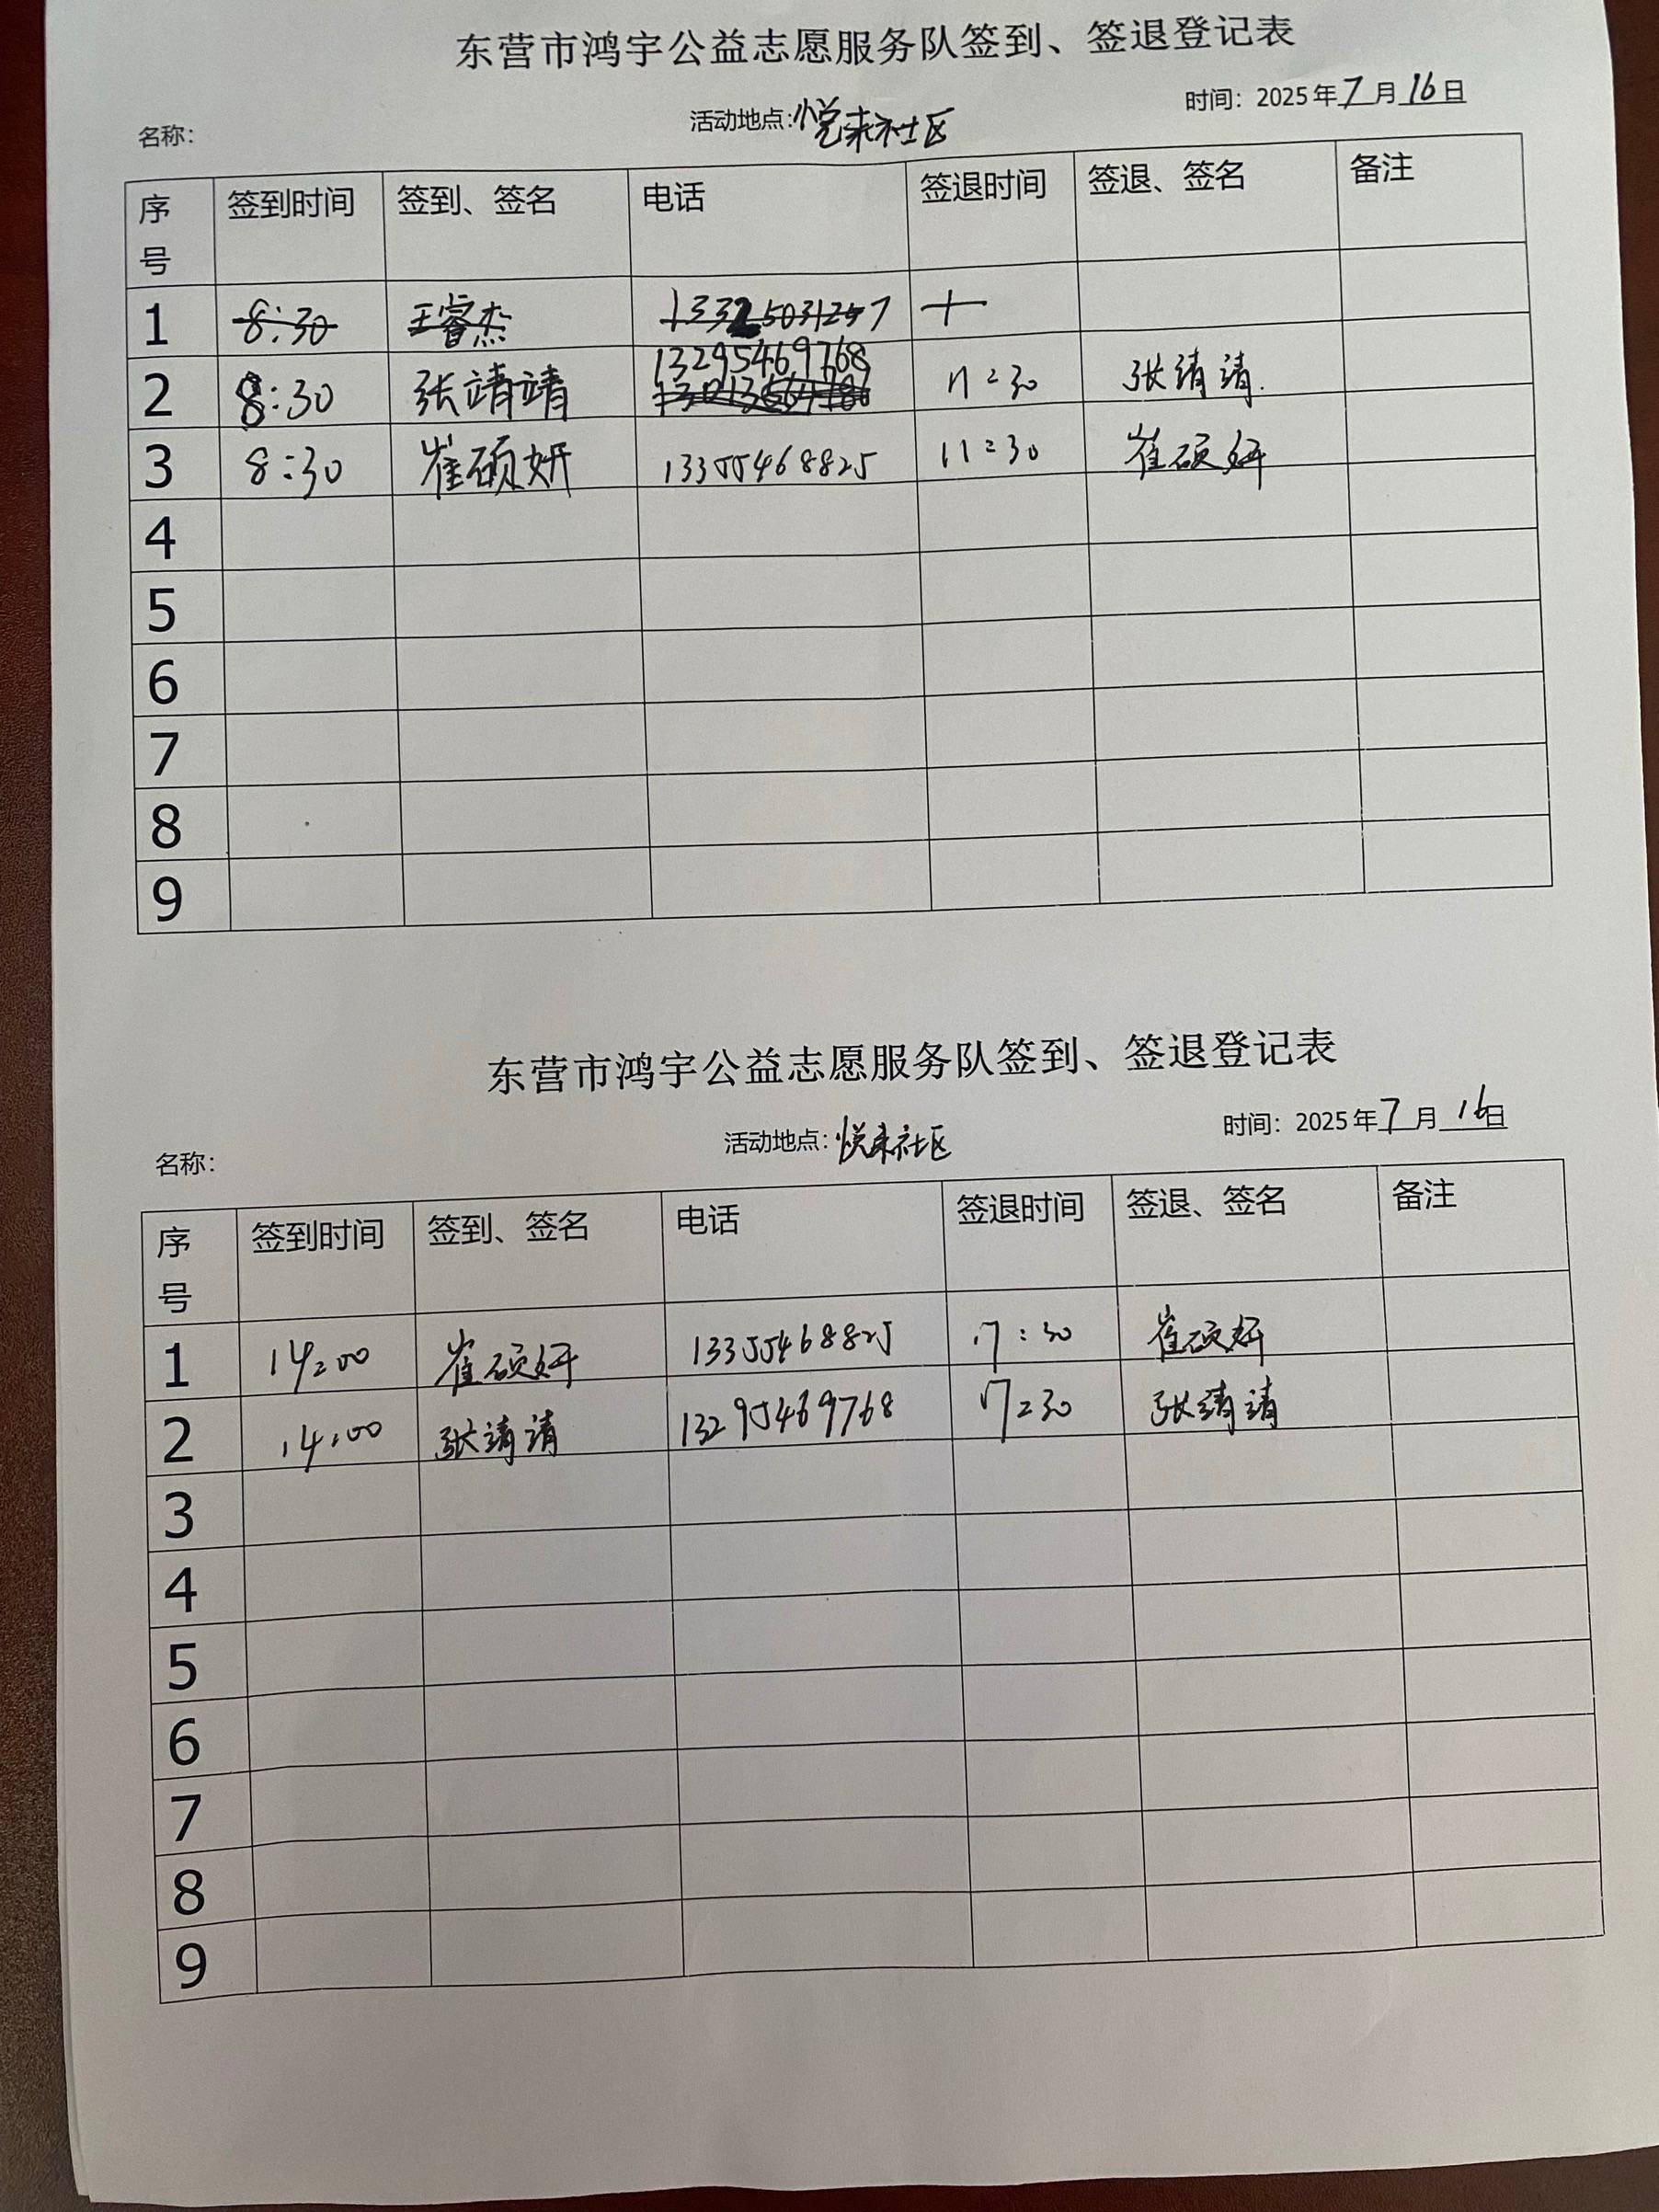 东营市鸿宇公益志愿服务队签到、签退登记表
名称： 活动地点：悦来社区 时间：2025年7月16日
序号 签到时间 签到、签名 电话 签退时间 签退、签名 备注
1 8:30 王睿杰
2 8:30 张靖靖 13295469768 11:30 张靖靖.
3 8:30 崔硕妍 13355468825 11:30 崔硕妍
4
5
6
7
8
9
东营市鸿宇公益志愿服务队签到、签退登记表
名称： 活动地点：悦来社区 时间：2025年7月16日
序号 签到时间 签到、签名 电话 签退时间 签退、签名 备注
1 14:00 崔硕妍 13355468825 17:30 崔硕妍
2 14:00 张靖靖 13295469768 17:30 张靖靖
3
4
5
6
7
8
9